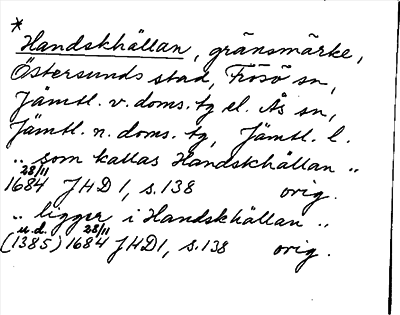 *
Handskhällan, gränsmärke,
Östersunds stad, Frösö sn,
Jämtl. v. doms. tg el. Ås sn,
Jämtl. n. doms. tg, Jämtl. l.
„ som kallas Handskhällan „
28/11
1684 JHD 1, s. 138 orig.
„ ligger i Handskhällan „
u.d. 28/11
(1385) 1684 JHD1, s. 138 orig.